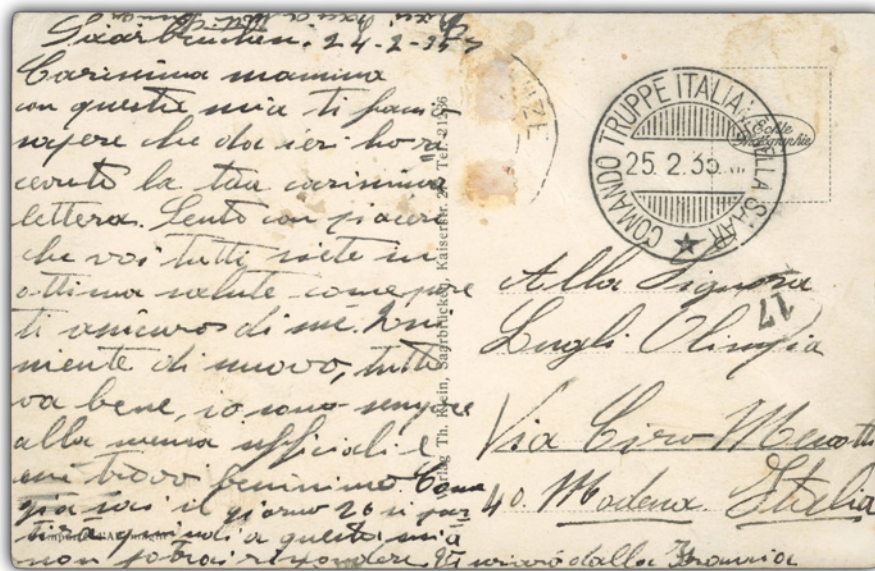 Saarbrücken. 24-2-35
Carissima mamma
con questa mia ti faccio
sapere che da ieri ho ri
cevuto la tua carissima
lettera. Sento con piacere
che voi tutti siete in
ottima salute come pure
ti assicuro di me. Qui
niente di nuovo, tutto
va bene, io sono sempre
alla mensa ufficiali e
mi trovo benissimo. Come
già sai il giorno 26 si par
tirà quindi a questa mia
non potrai rispondere. Ti scriverò dalla
Verlag Th. Klein, Saarbrücken, Kaiserstr. Tel. 21236
COMANDO TRUPPE ITALIANE DELLA SAAR
25. 2. 35
Echte
Photographie
17
Alla Signora
Lugli Olimpia
Via Ciro Menotti
40. Modena. Italia